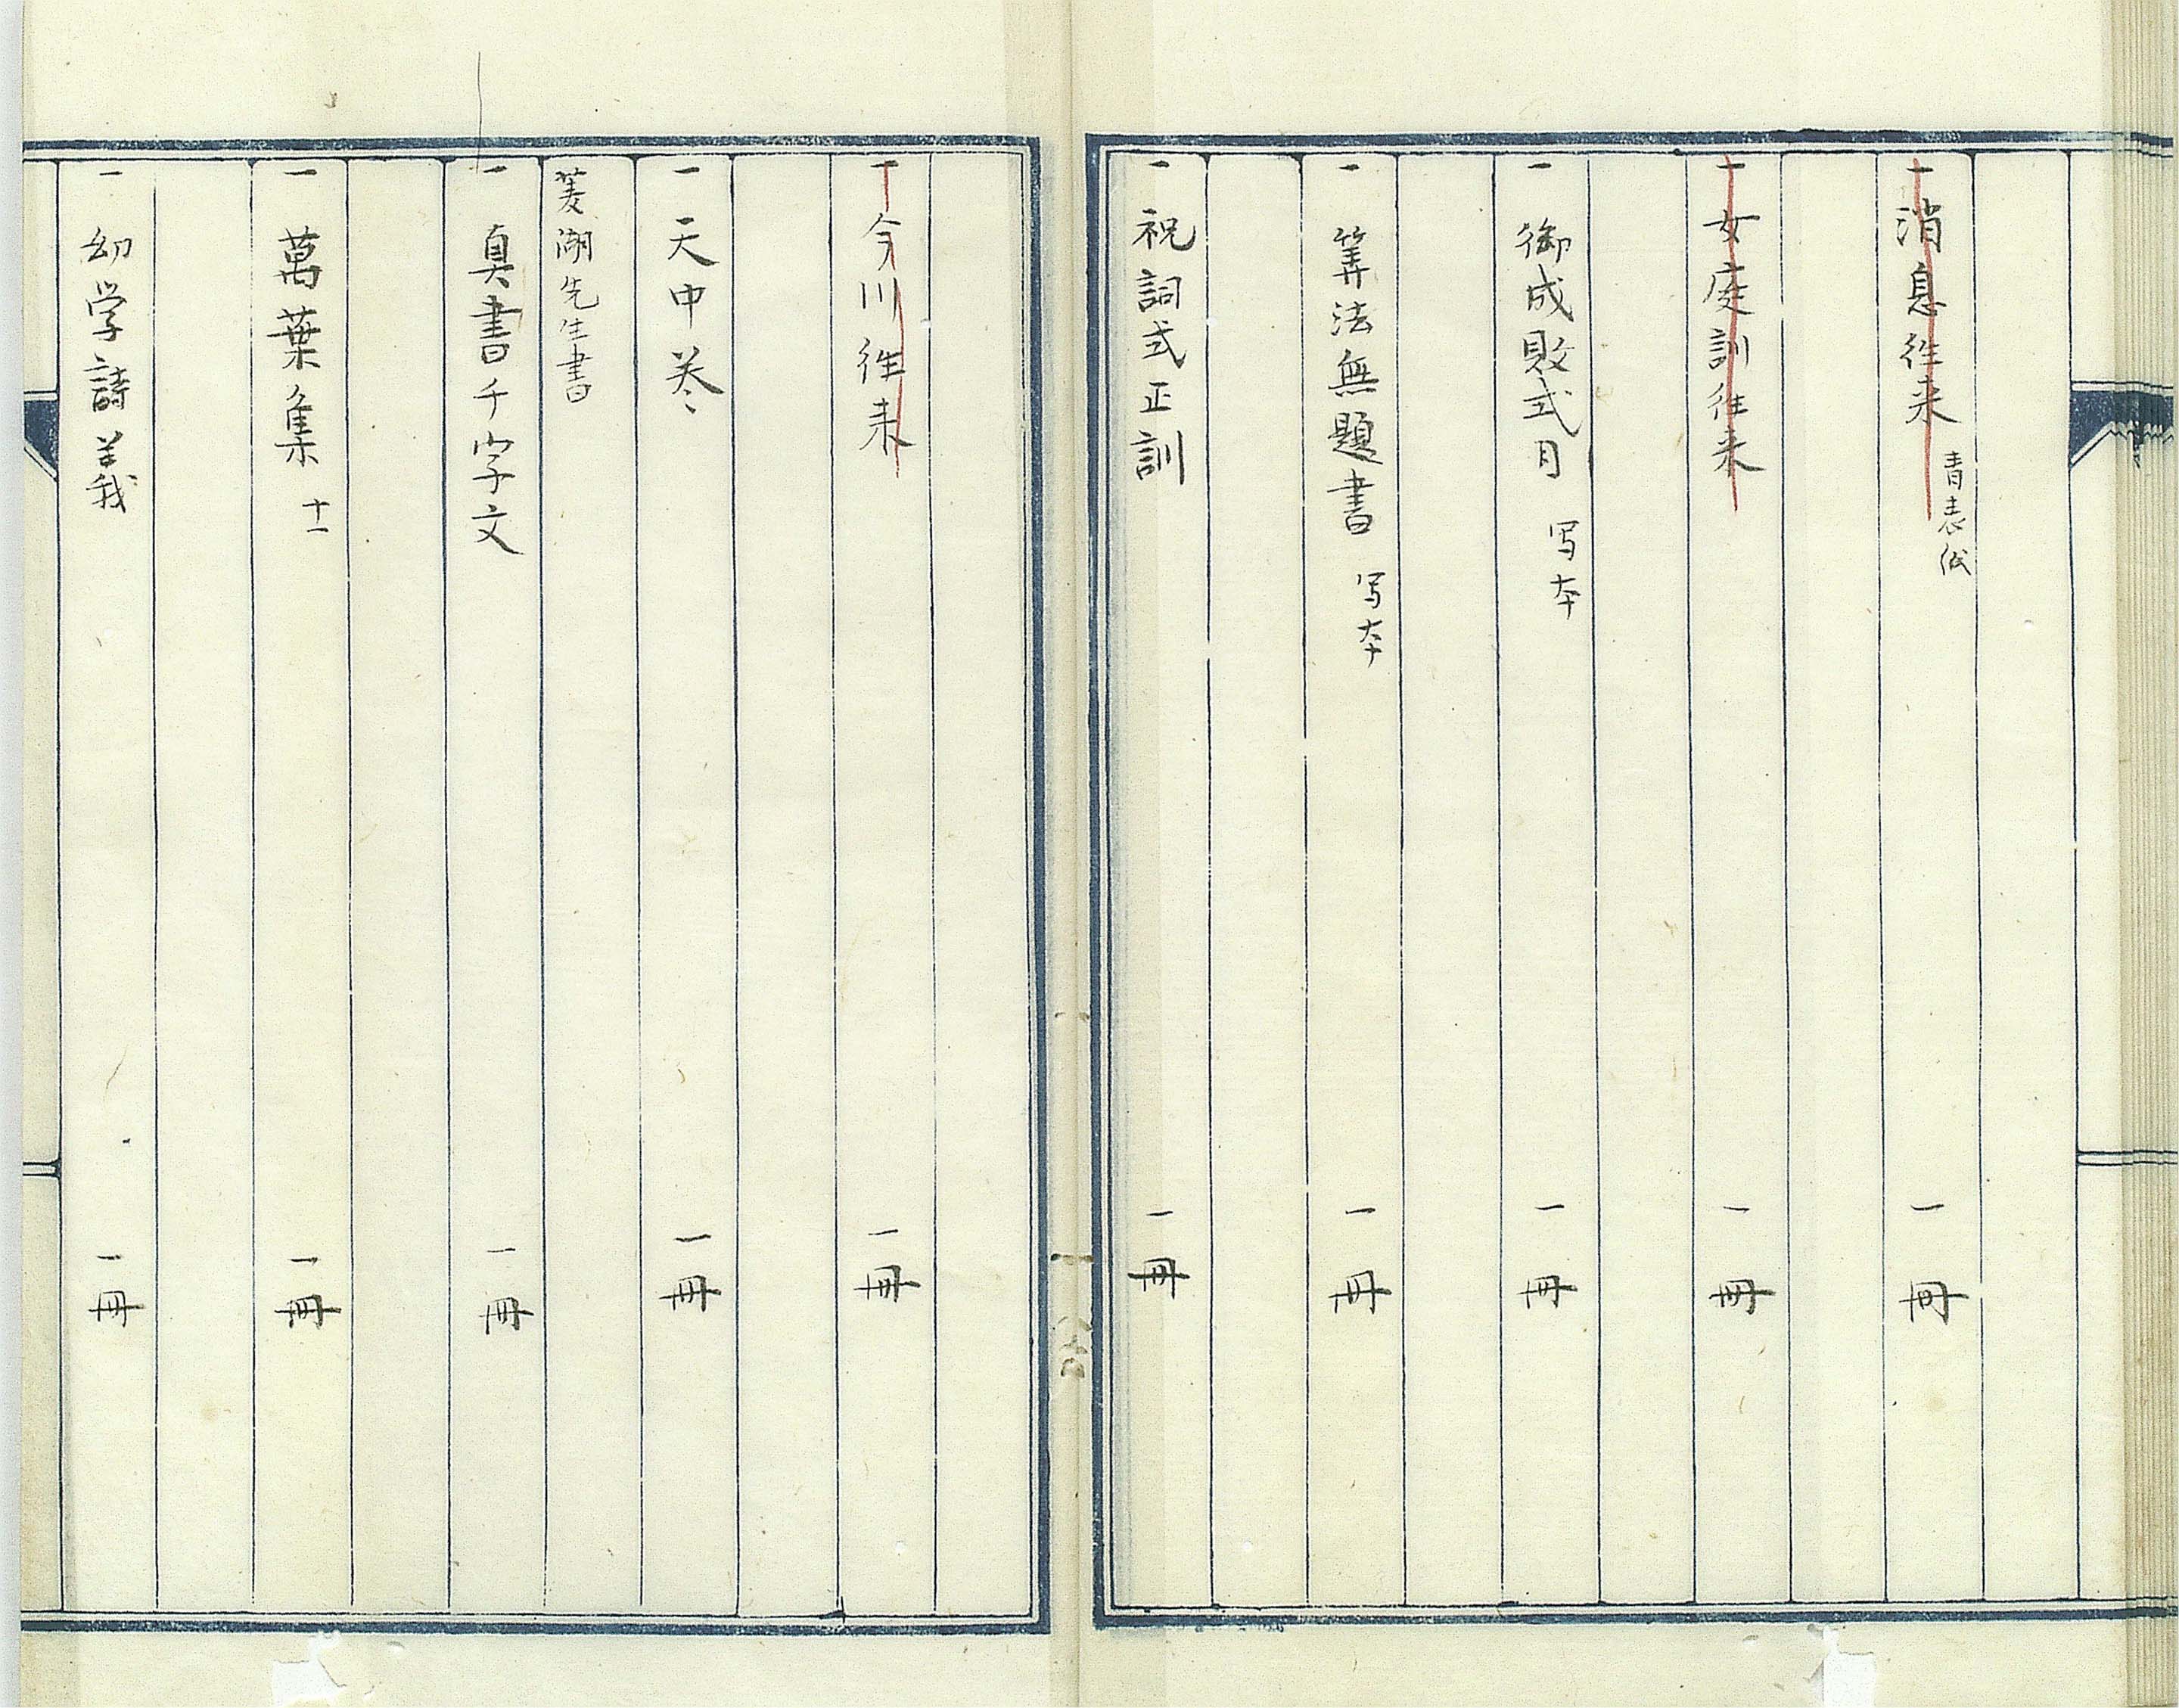 一 消息往来 青表紙 一冊
一 女庭訓往来 一冊
一 御成敗式目 写本 一冊
一 筭法無題書 写本 一冊
一 祝詞式正訓 一冊
一 今川往来 一冊
一 天中巻 一冊
菱湖先生書
一 真書千字文 一冊
一 萬葉集 十一 一冊
一 幼学詩義 一冊